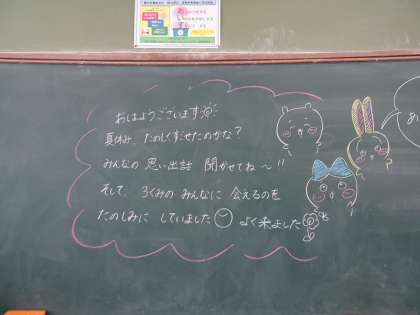 おはようございます
夏休み、たのしくすごせたのかな?
みんなの 思い出話 聞かせてね～!!
そして、3くみの みんなに 会えるのを
たのしみに していました よく来ました